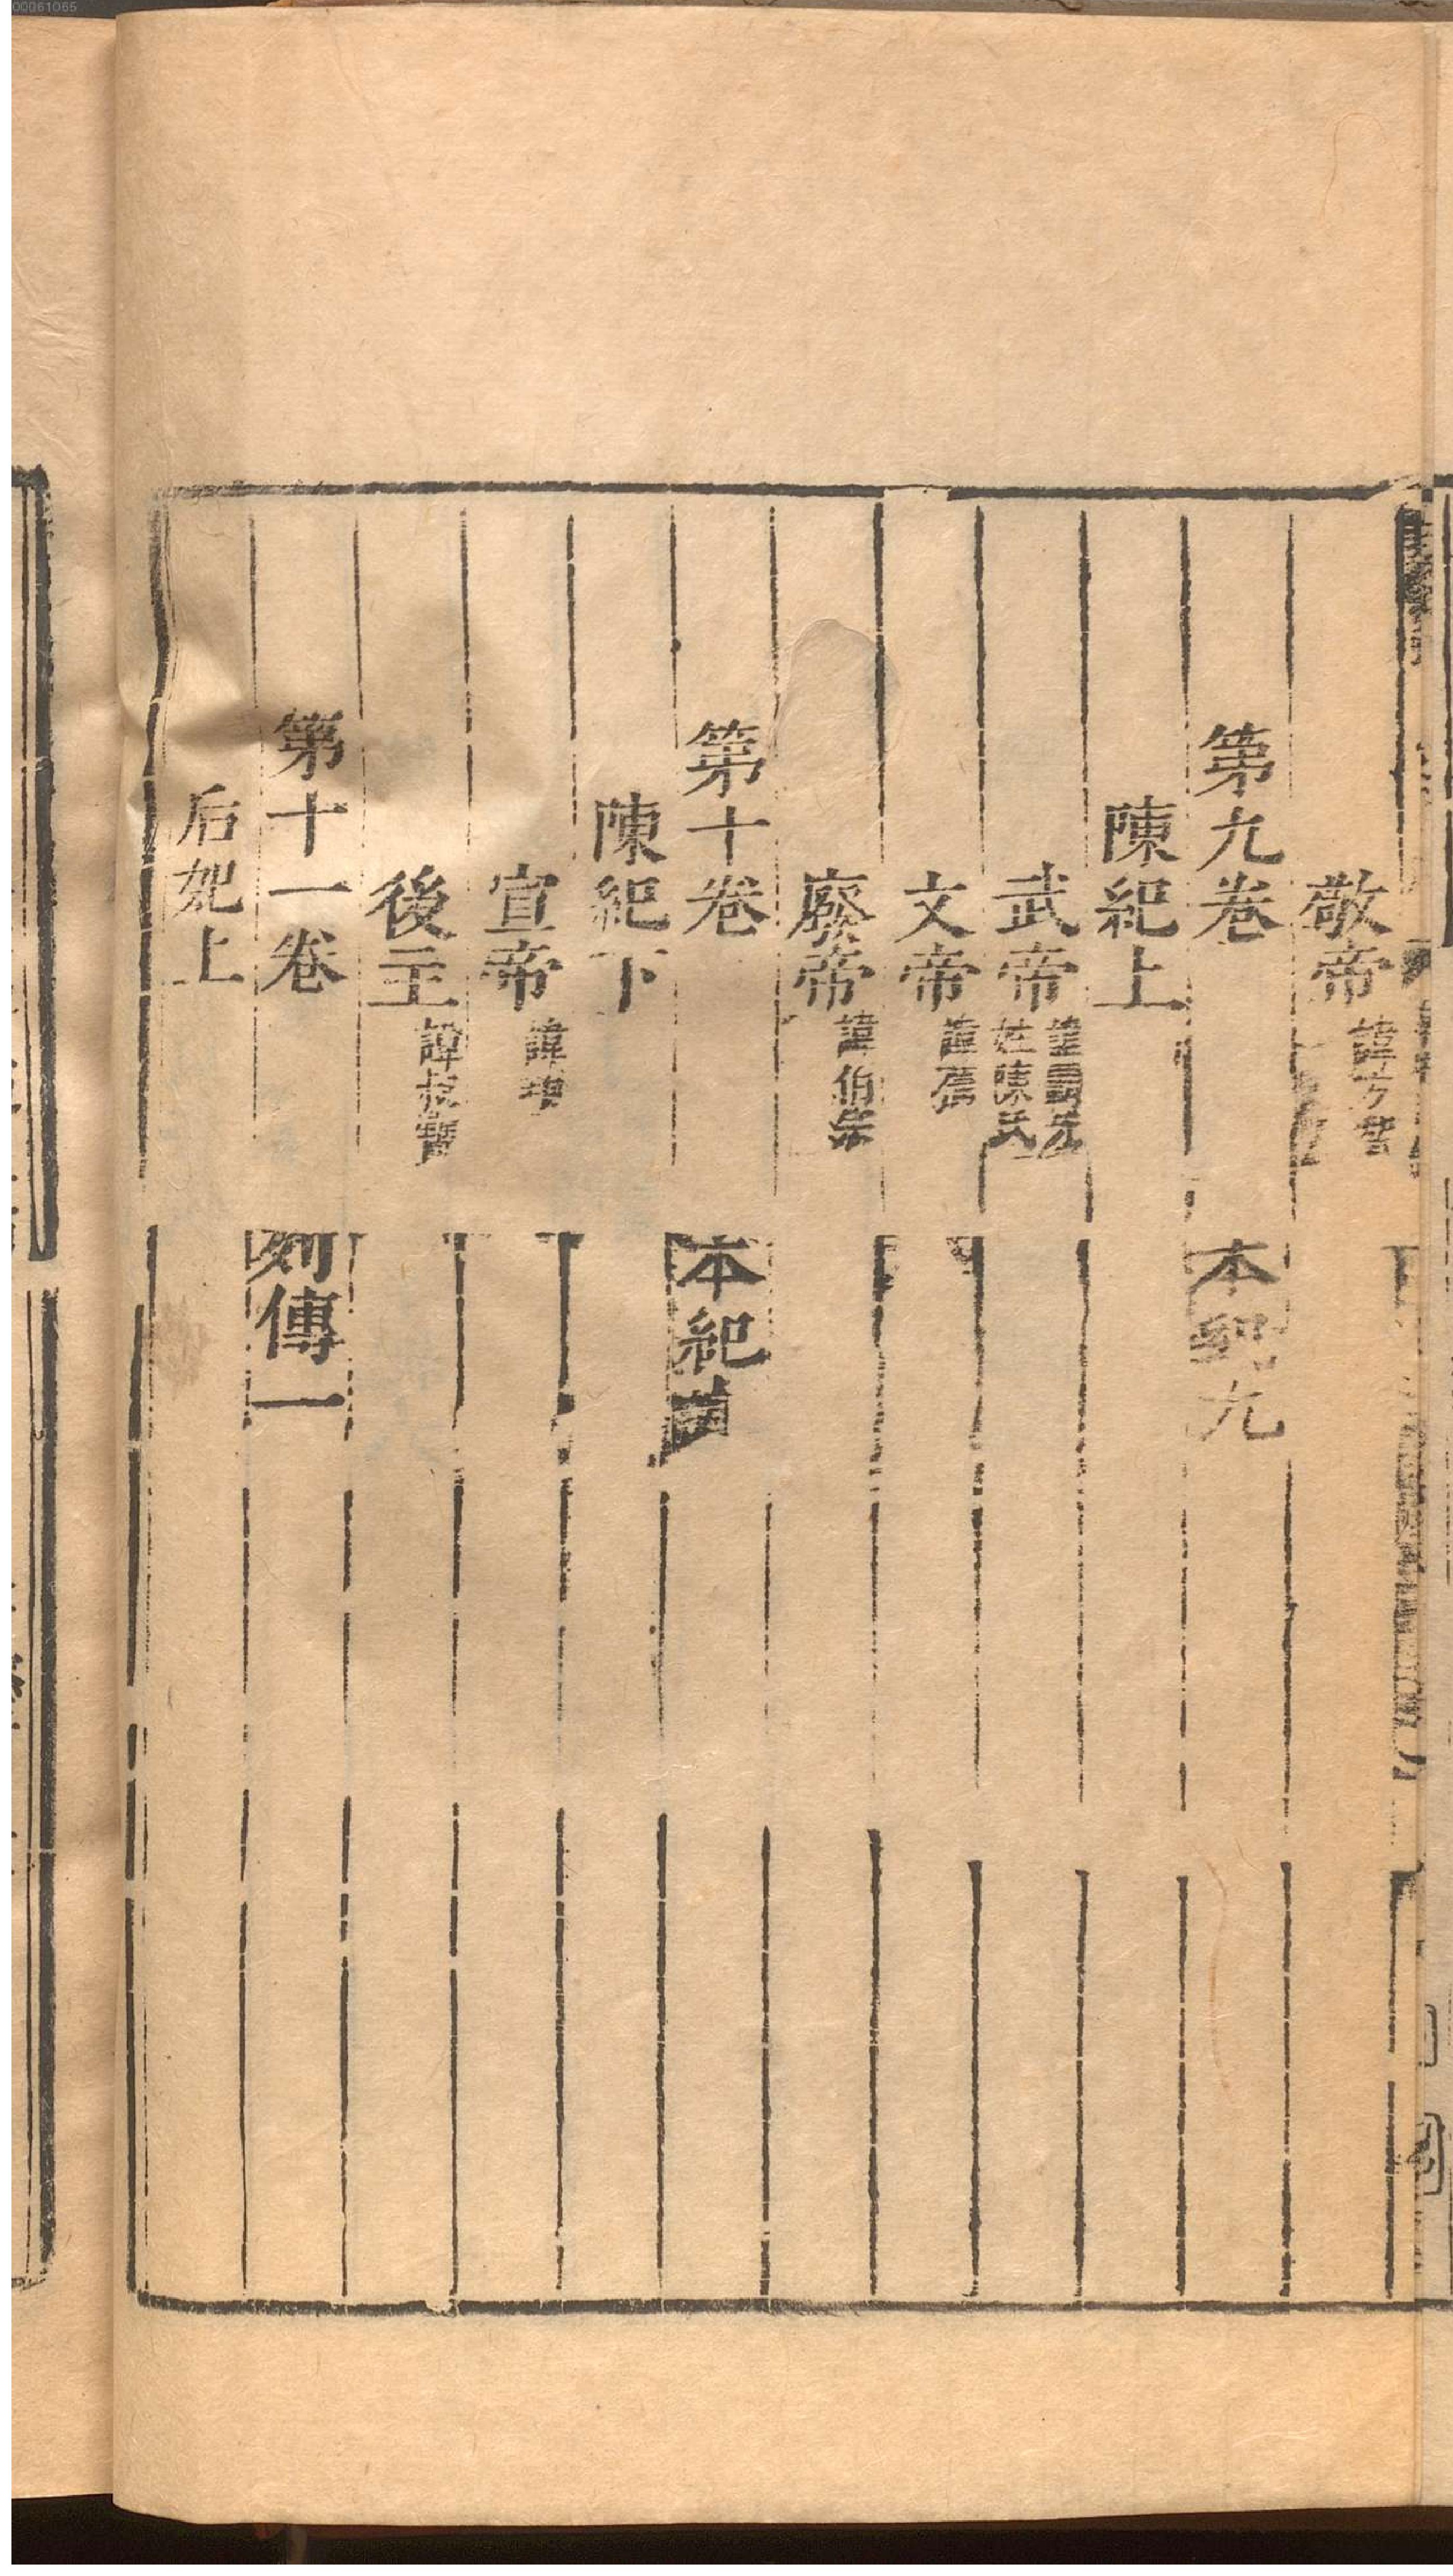 敬帝 諱方智
第九卷 本紀九
陳紀上
武帝 諱霸先姓陳氏
文帝 諱蒨
廢帝 諱伯宗
第十卷 本紀
陳紀下
宣帝 諱頊
後主 諱叔寶
第十一卷 列傳一
后妃上
00061065